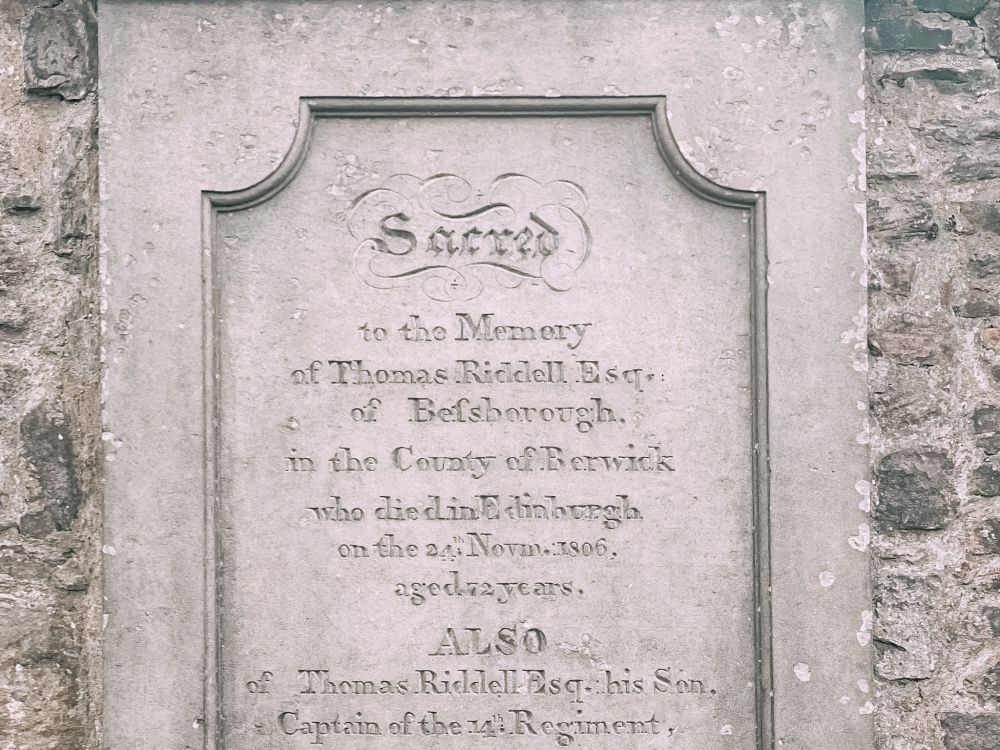 Sacred
to the Memery
of Thomas Riddell Esq.:
of Beſsborough,
in the County of Berwick
who died in Edinburgh
on the 24th Novm. 1806,
aged 72 years.
ALSO
of Thomas Riddell Esq.: his Son,
Captain of the 14th Regiment,